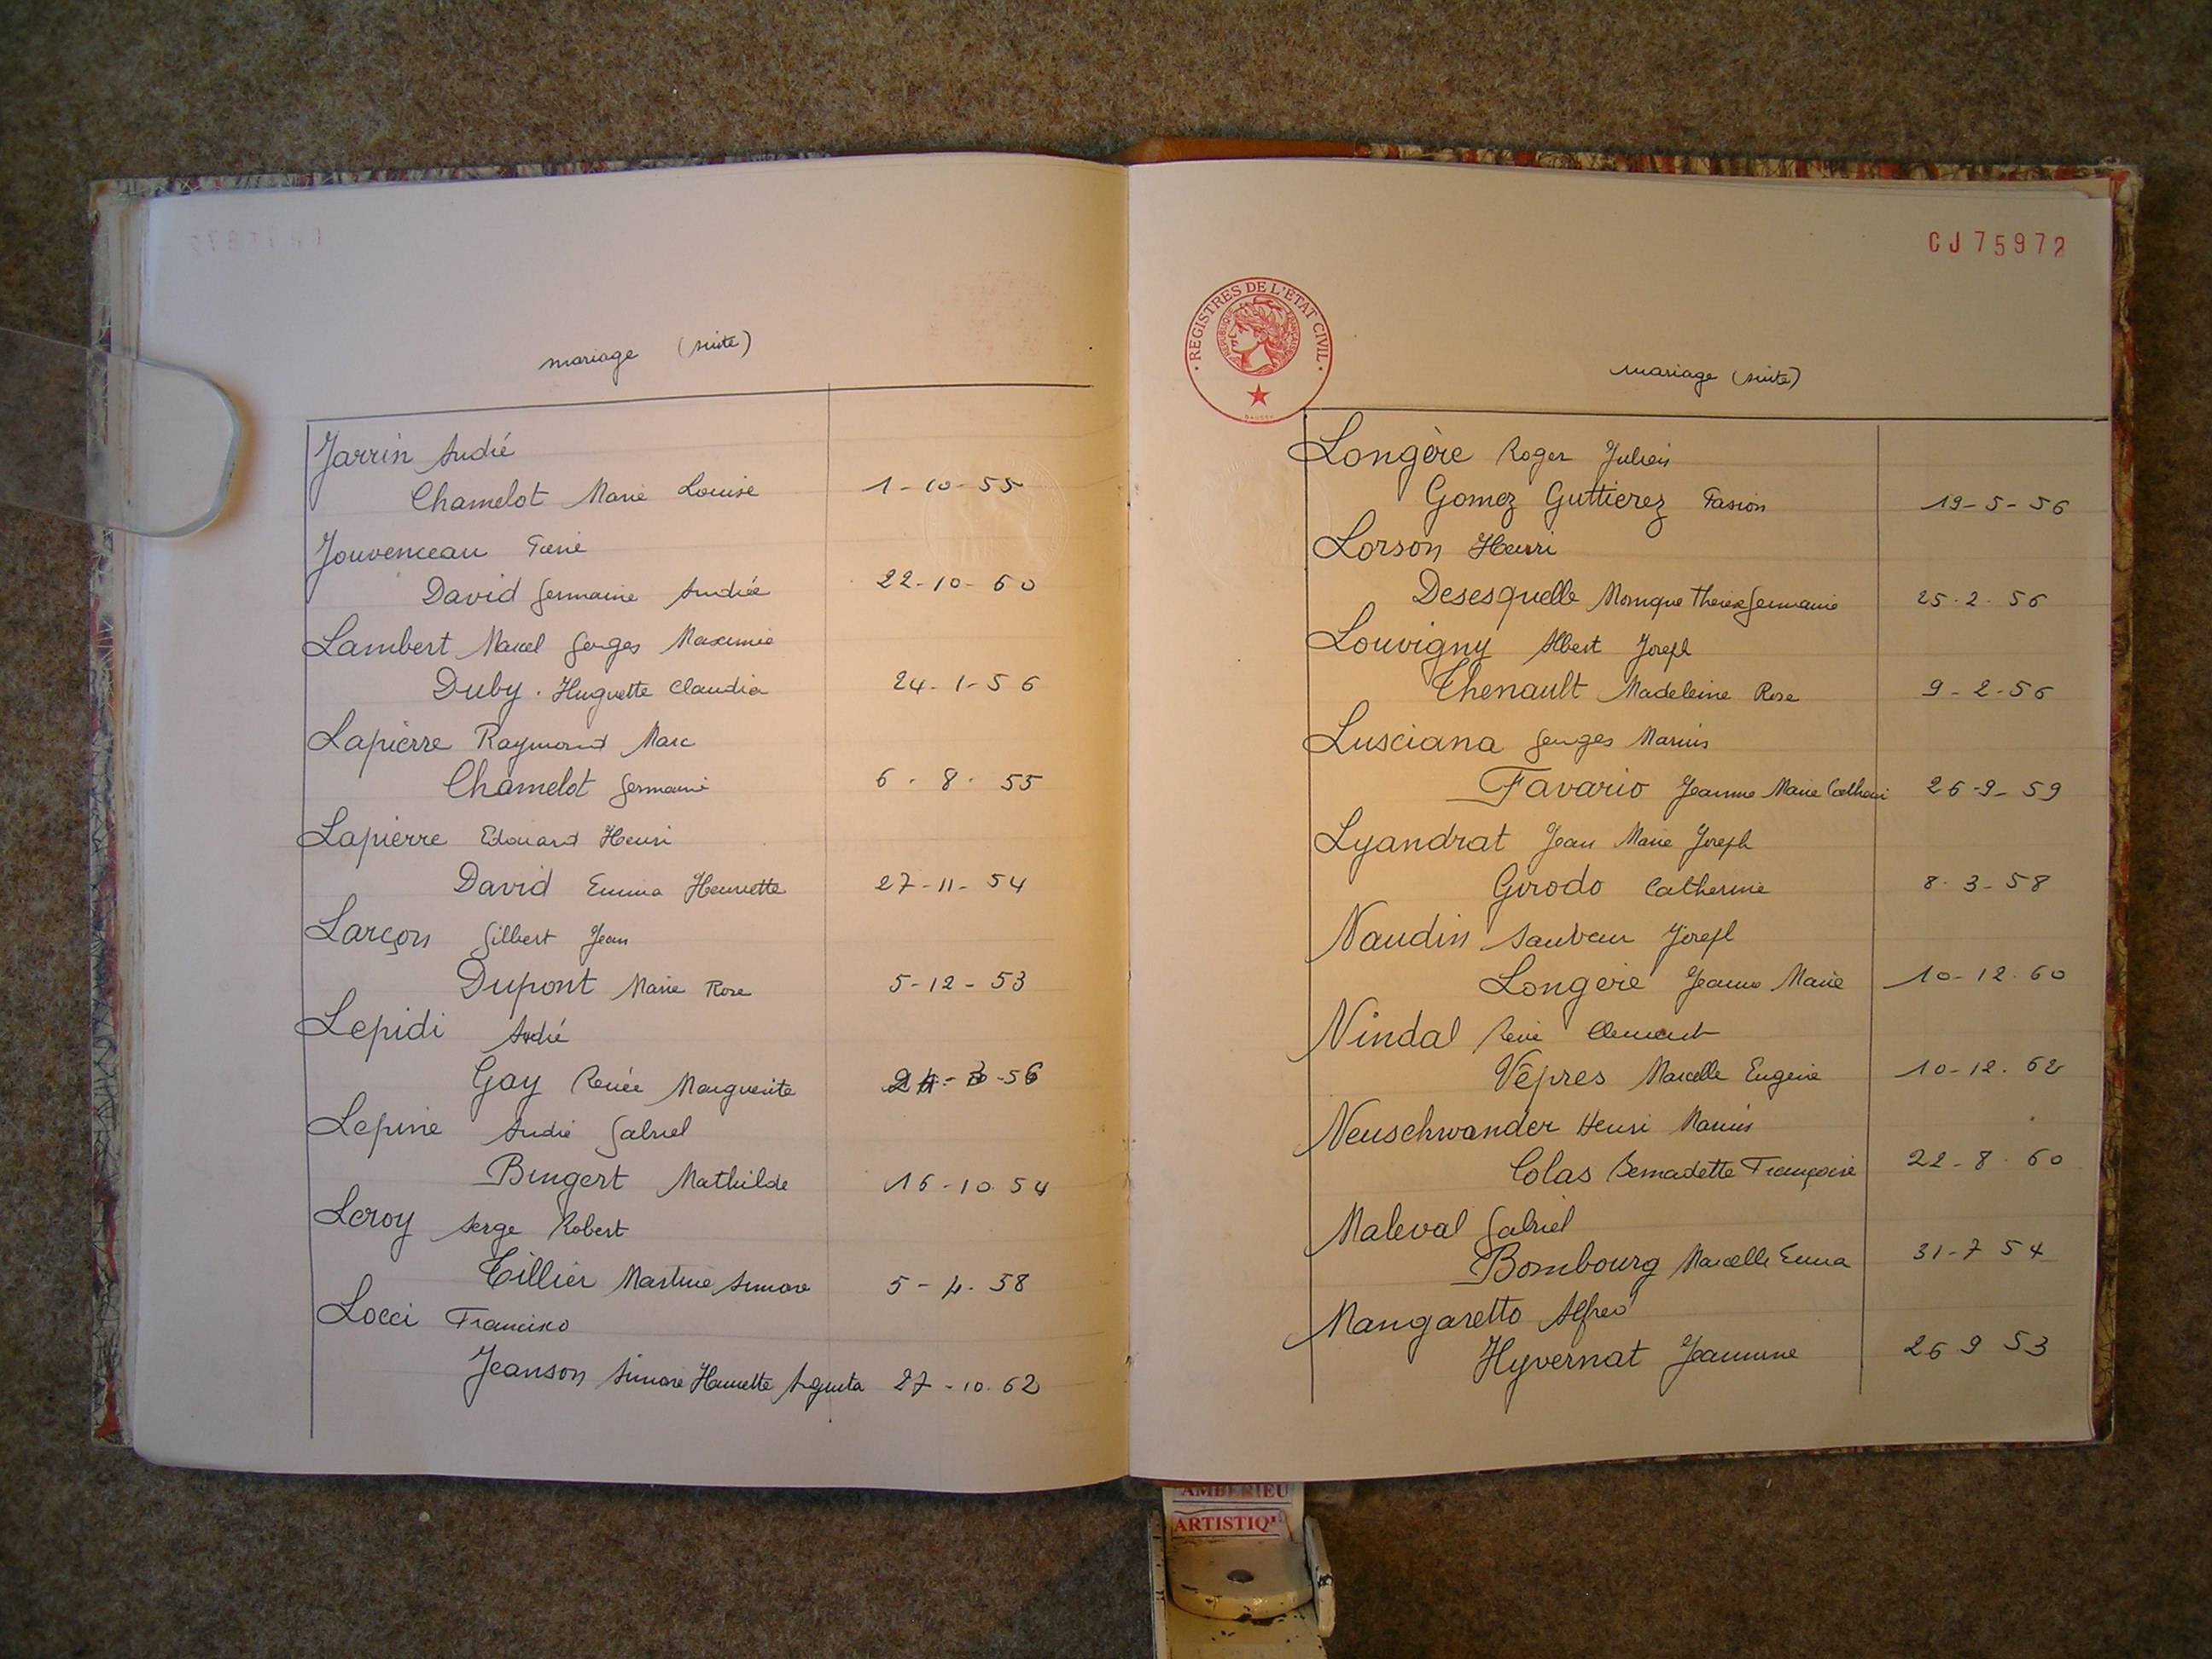 mariage (suite)
Jarrin André
Chamelot Marie Louise 1-10-55
Jouvenceau
David Germaine Andrée 22-10-60
Lambert Marcel Georges Maxime
Duby. Huguette Claudia 24-1-56
Lapierre Raymond Marc
Chamelot Germaine 6-8-55
Lapierre Edouard Henri
David Emma Henriette 27-11-54
Larçon Gilbert Jean
Dupont Marie Rose 5-12-53
Lepidi André
Gay Renée Marguerite
Lepine André Gabriel
Bingert Mathilde 16-10-54
Leroy Serge Robert
Tillier Martine Simone 5-4-58
Locci Francisco
Jeanson Simone Henriette 27-10-62
CJ 75972
REGISTRES DE L'ÉTAT CIVIL
RÉPUBLIQUE FRANÇAISE
mariage (suite)
Longère Roger Julien
Gomez Guttierez 19-5-56
Lorson Henri
Desesquelle Monique Thérèse Germaine 25-2-56
Louvigny Albert Joseph
Thenault Madeleine Rose 9-2-56
Lusciana Georges Marius
Favario Jeanne Marie 26-9-59
Lyandrat Jean Marie Joseph
Girodo Catherine 8-3-58
Naudin Sauveur Joseph
Longère Jeanne Marie 10-12-60
Nindal René Clement
Vêpres Marcelle Eugénie 10-12-62
Neuschwander Henri Marius
Colas Bernadette Françoise 22-8-60
Maleval Gabriel
Bombourg Marcelle Emma 31-7-54
Mangaretto Alfred
Hyvernat Jeannine 26 9 53
AMBERIEU
ARTISTIQ